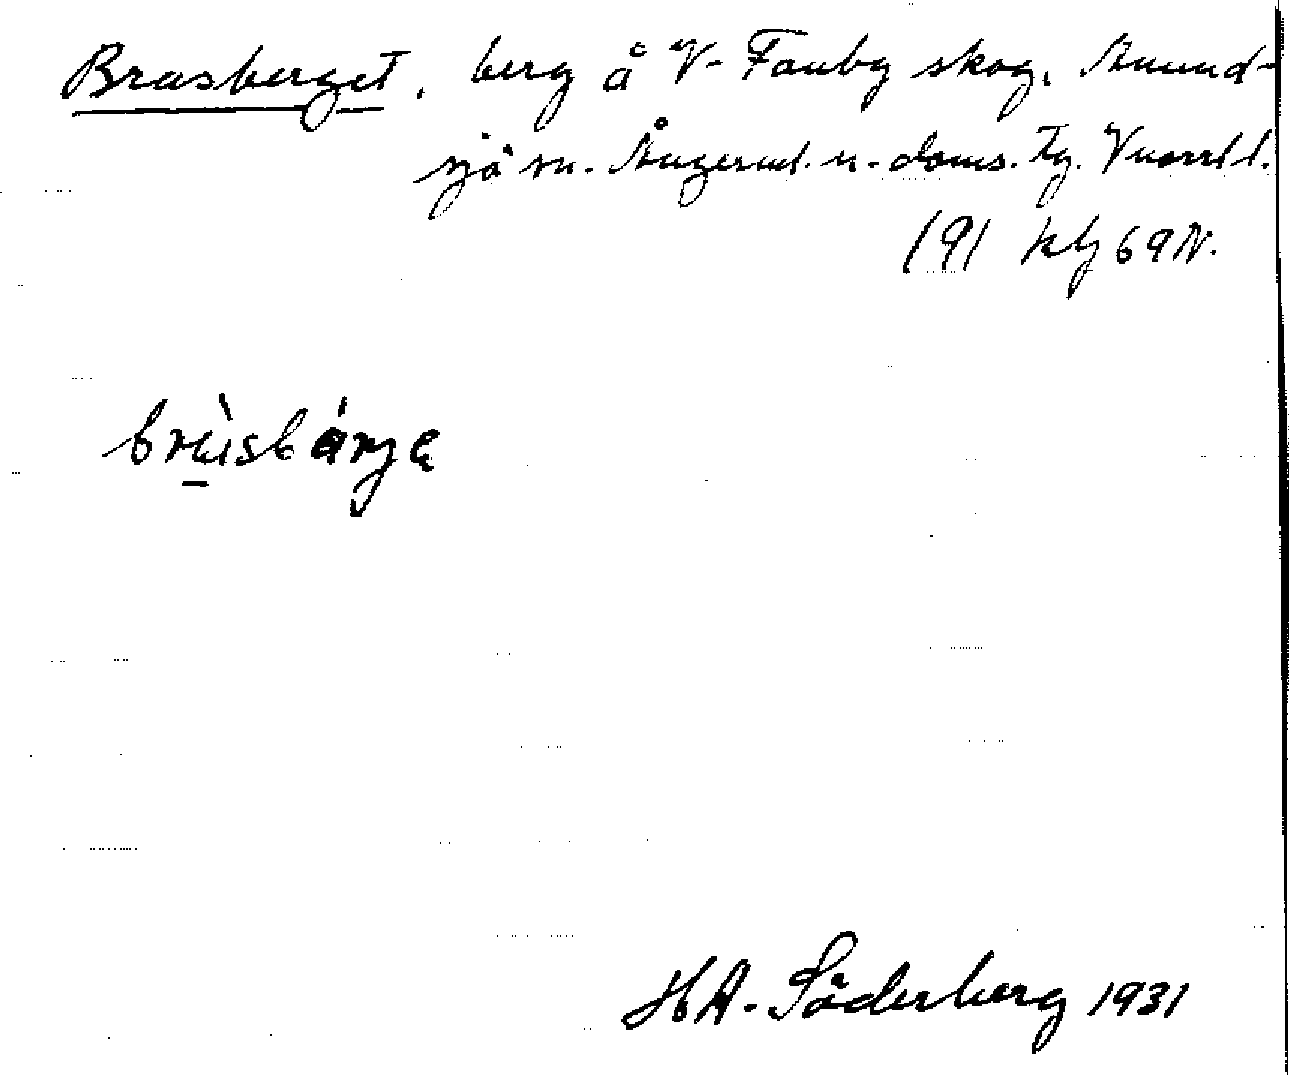 Brasberget, berg å V. Fanby skog, Anund-
sjö sn. Ångerml. n. doms. Tg. Vnorrl l.
191 klj 69 N.
bràsbárję
H A. Söderberg 1931